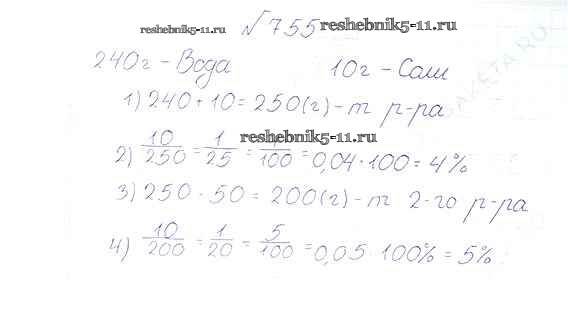 reshebnik5-11.ru №755 reshebnik5-11.ru
240г - Вода 10г - Соли
1) 240 + 10 = 250(г) - m р-ра
reshebnik5-11.ru
2) 10/250 = 1/25 = /100 = 0,04 · 100 = 4%
3) 250 - 50 = 200(г) - m 2-го р-ра
4) 10/200 = 1/20 = 5/100 = 0,05 · 100% = 5%